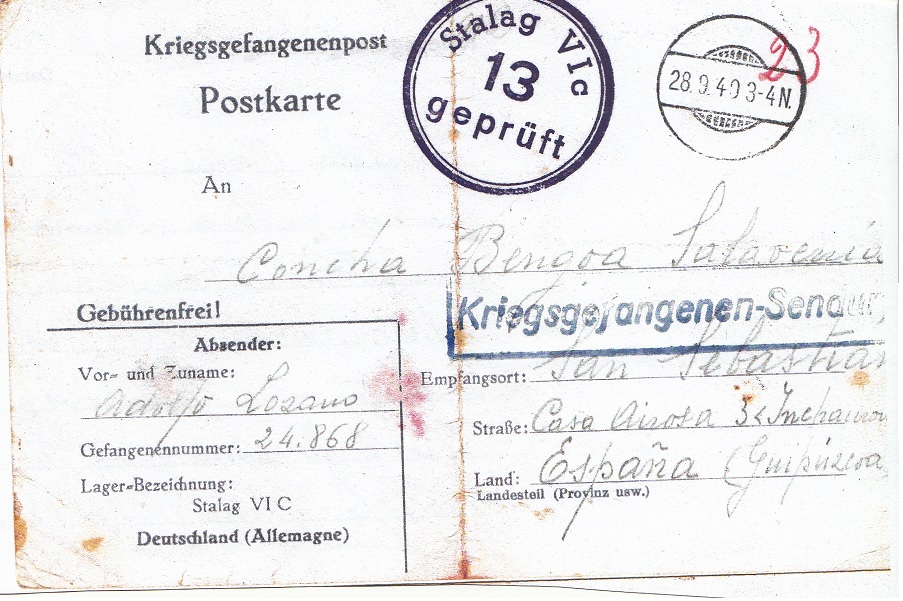 Kriegsgefangenenpost
Postkarte
Stalag VIc
13
geprüft
28.9.40 3-4 N.
23
An
Concha Bengoa
Gebührenfrei!
Kriegsgefangenen-Sendung
Absender:
Vor- und Zuname:
Adolfo Lozano
Gefangenennummer: 24.868
Lager-Bezeichnung:
Stalag VI C
Deutschland (Allemagne)
Empfangsort: San Sebastian
Straße: Casa Airosa 3
Land: España (Guipúzcoa
Landesteil (Provinz usw.)